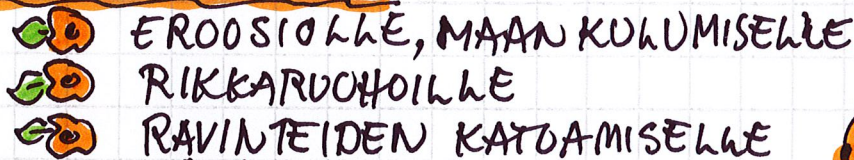 EROOSIOLLE, MAAN KULUMISELLE
RIKKARUOHOILLE
RAVINTEIDEN KATOAMISELLE